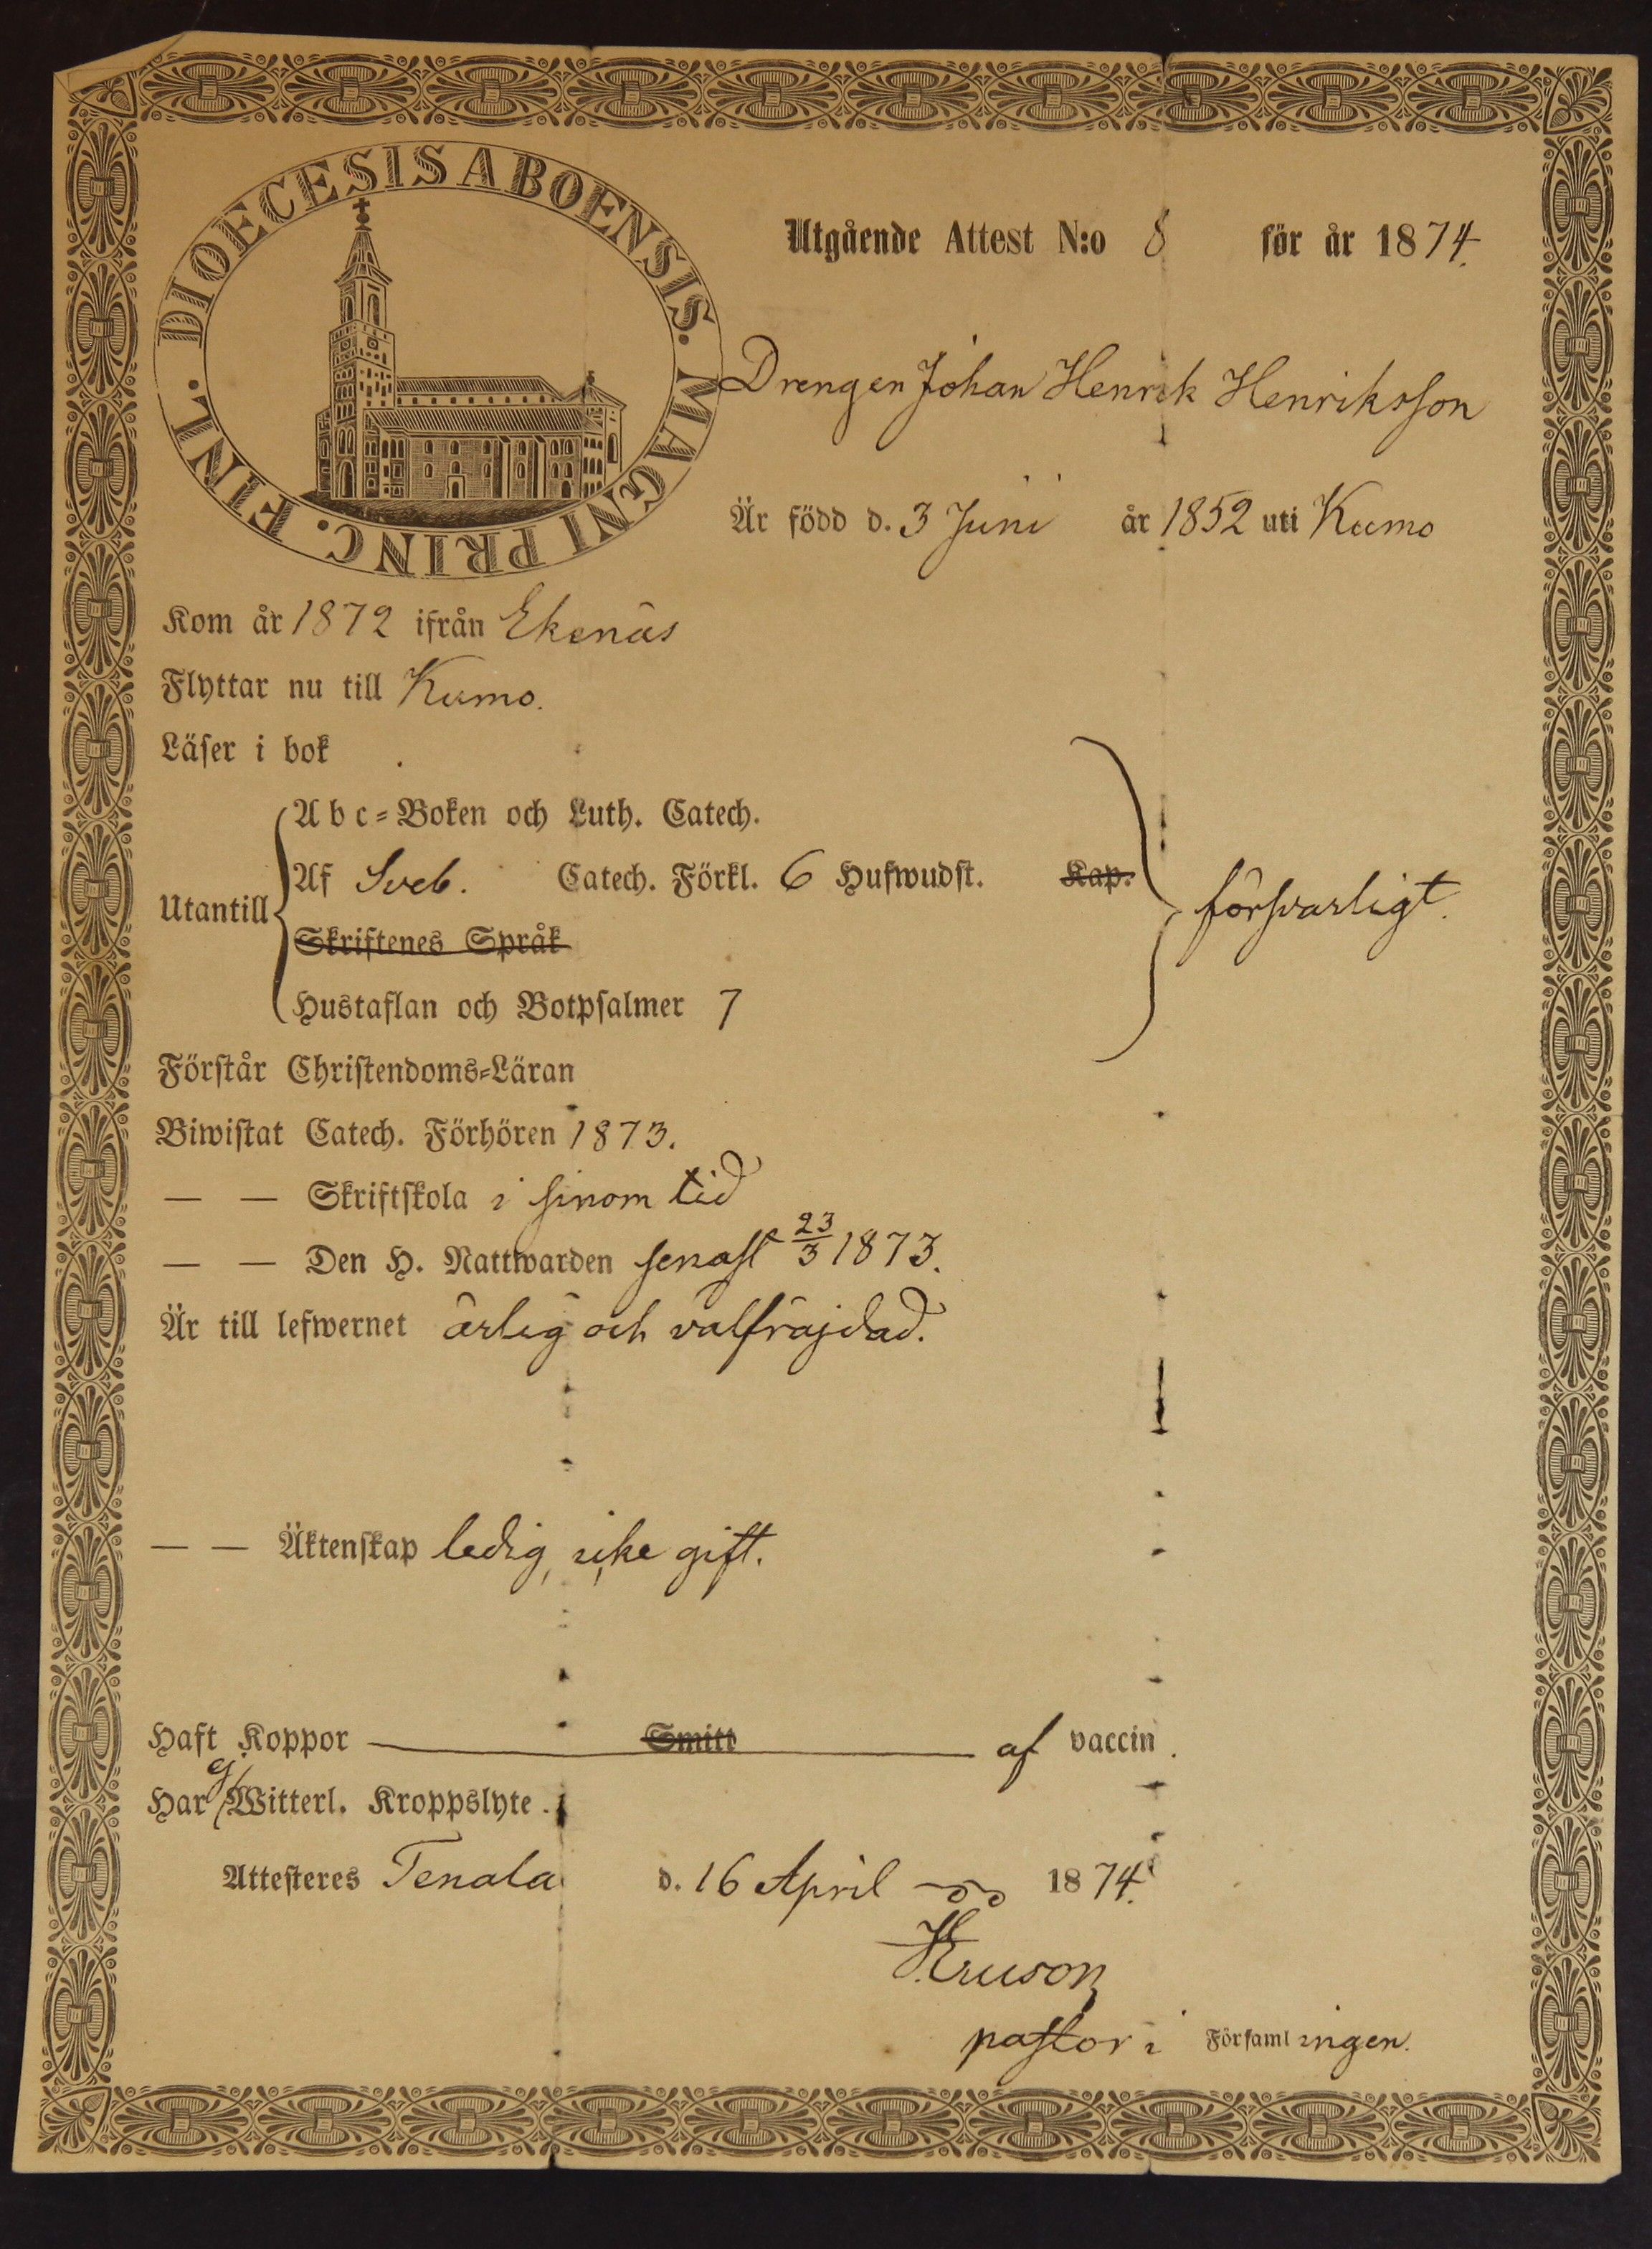 DIOECESIS ABOENSIS. MAGNI PRINC. FINL.
Utgående Attest N:o 8 för år 1874.
Drengen Johan Henrik Henriksson
Är född d. 3 Juni år 1852 uti Kumo
Kom år 1872 ifrån Ekenäs
Flyttar nu till Kumo.
Läser i bok
Abc-Boken och Luth. Catech.
Utantill Af Sveb. Catech. Förkl. 6 Hufwudst. Kap. försvarligt.
Skriftenes Språk
Hustaflan och Botpsalmer 7
Förstår Christendoms-Läran
Biwistat Catech. Förhören 1873.
— — Skriftskola i sinom tid
— — Den H. Nattwarden senast 23/3 1873.
Är till lefwernet ärlig och välfräjdad.
— — Äktenskap ledig, icke gift.
Haft Koppor — Smitt — af vaccin.
Har ej Witterl. Kroppslyte.
Attesteres Tenala d. 16 April 1874.
pastor i Församlingen.